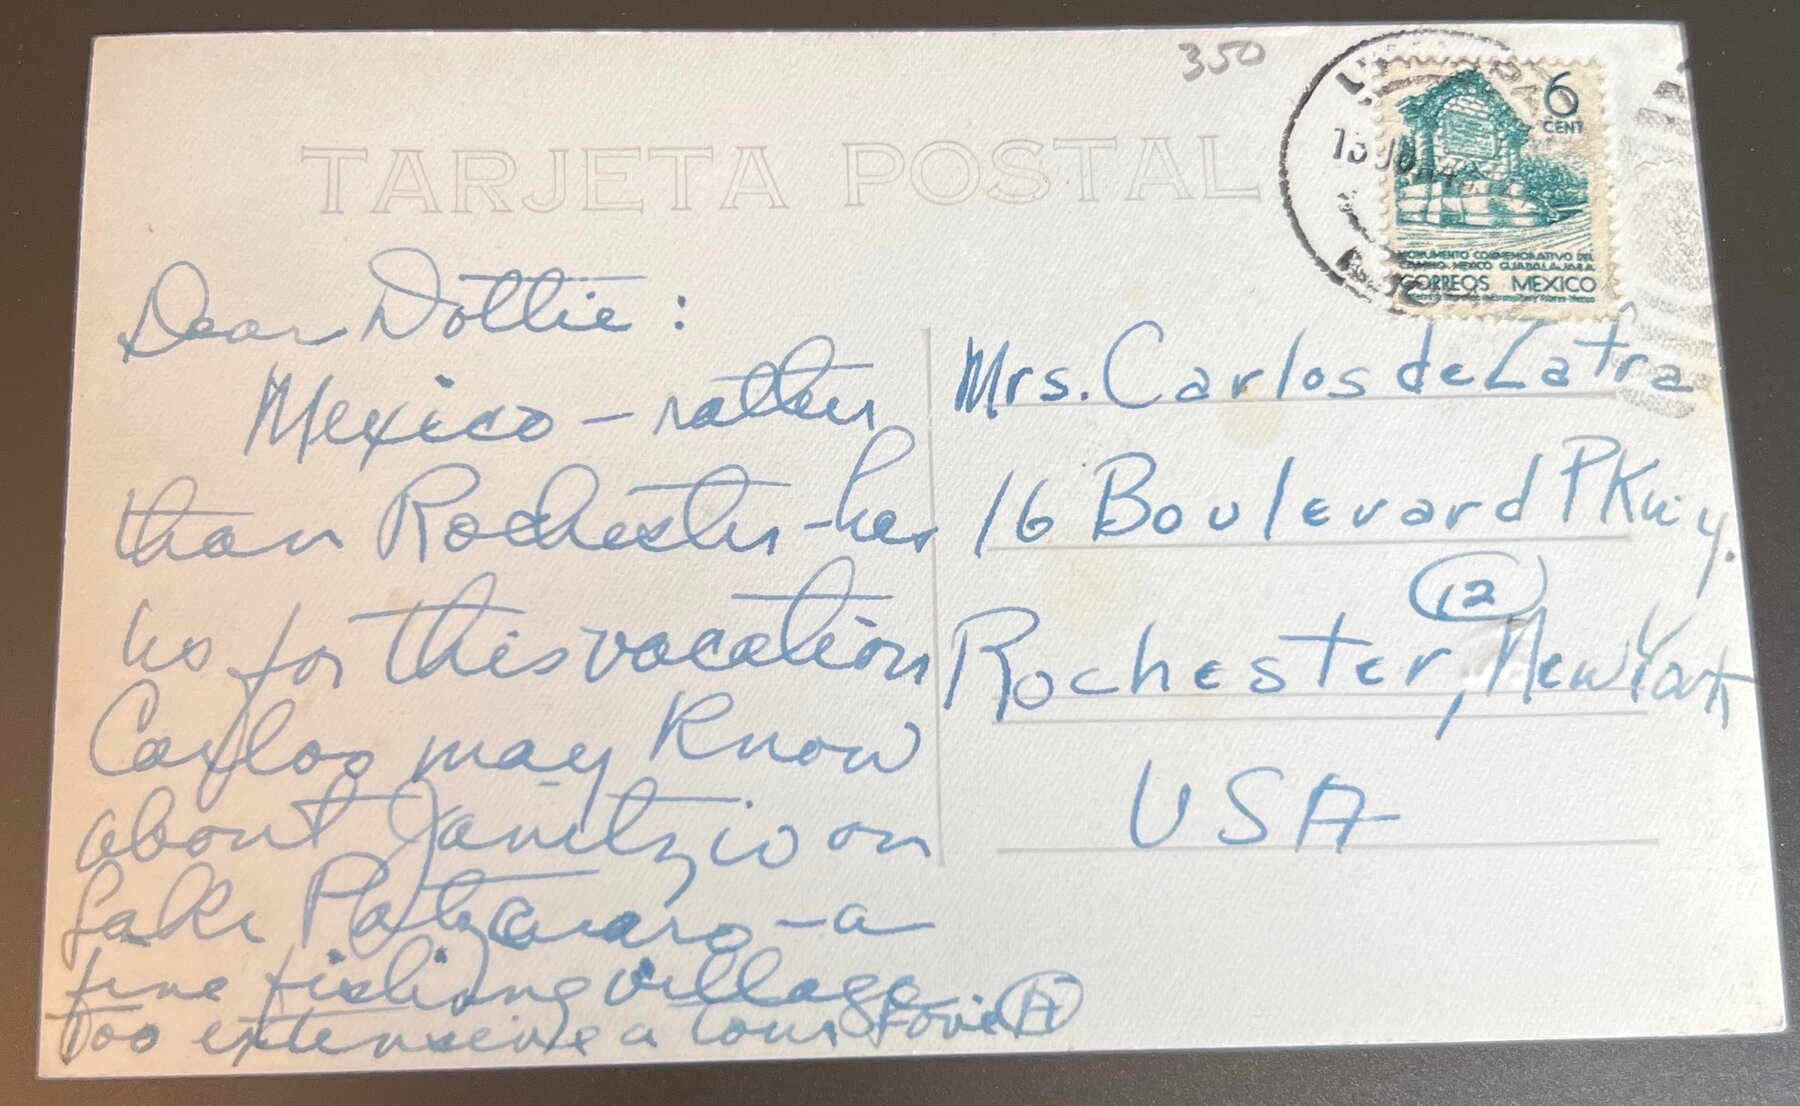 350
TARJETA POSTAL
6
CENT
MONUMENTO CONMEMORATIVO DEL
CAMINO MEXICO GUADALAJARA
CORREOS MEXICO
Dear Dottie:
Mexico - rather
than Rochester - has
us for this vacation
Carlos may know
about Janitzio on
Lake Patzcuaro - a
fine fishing village
Too extensive a tour Love A
Mrs. Carlos de Latra
16 Boulevard PKwy.
Rochester, 12 New York
USA